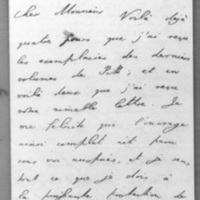 Cher Monsieur Voilà déjà
quatre jours que j'ai reçu
les exemplaires des derniers
volumes de ; et en
voilà deux que j'ai reçu
votre aimable lettre. Je
me félicite que l'ouvrage
aussi complet ait paru
sous vos auspices, et je sens
tout ce que je dois à
la puissante protection de